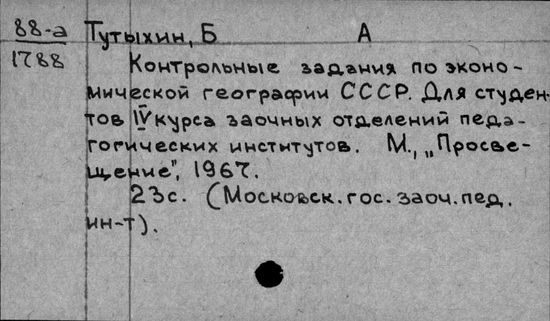 88-а Тутыхин, Б А
1788
Контрольные задания по эконо-
мической географии СССР. Для студен-
тов IV курса заочных отделений педа-
гогических институтов. М., „Просве-
щение", 1967.
23с. (Московск.гос.заоч.пед.
ин-т).